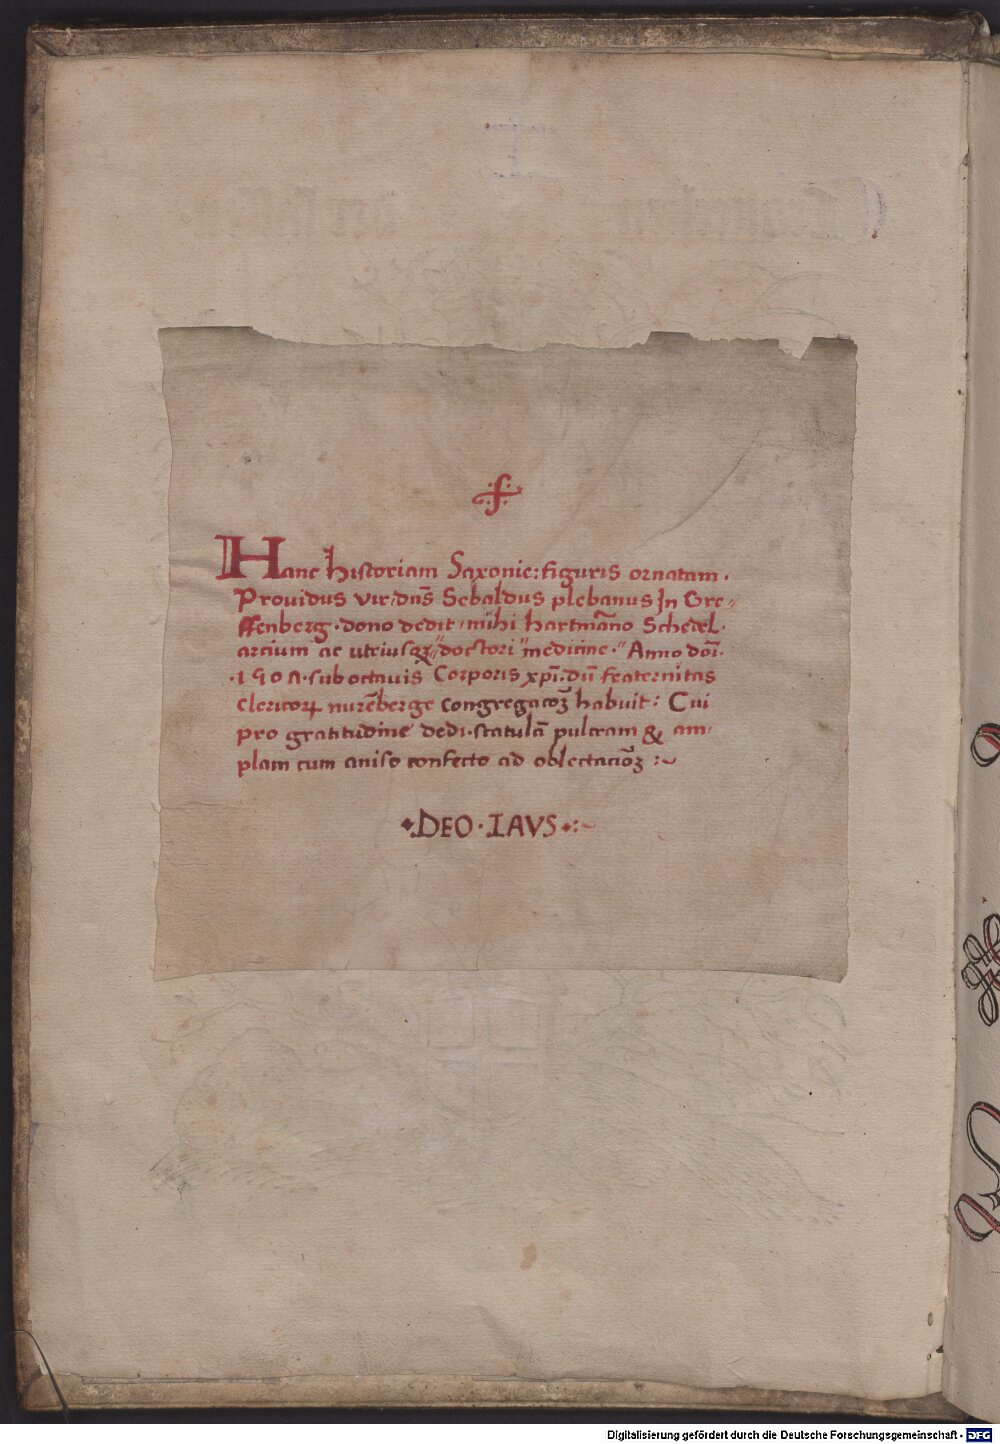 Hanc historiam Saxonie: figuris ornatam.
Prouidus vir: dn̄s Sebaldus plebanus In Gre-
ffenberg. dono dedit mihi hartmāno Schedel.
arcium ac utriusqꝫ doctori medicine. Anno doī.
.1501. sub octauis Corporis xp̄i. dū fraternitas
clericoꝝ nurēberge congregacōꝫ habuit: Cui
pro gratitudine dedi. scatulā pulcram & am-
plam cum aniso confecto ad oblectaciōꝫ :~
DEO. LAVS
Digitalisierung gefördert durch die Deutsche Forschungsgemeinschaft - DFG